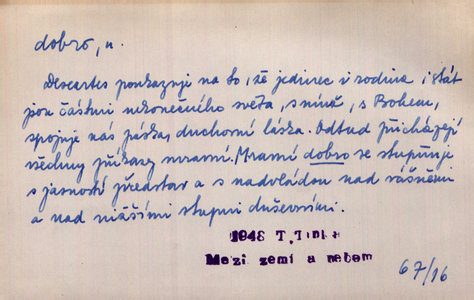 dobro, n.
Descartes poukazuje na to, že jedinec i rodina i stát
jsou částmi nekonečného světa, s nímž, s Bohem,
spojuje nás páska, duchovní láska. Odtud přicházejí
všechny příkazy mravní. Mravní dobro se stupňuje
s jasností představ a s nadvládou nad vášněmi
a nad nižšími stupni duševními.
1946 T.
Mezi zemí a nebem
67/16